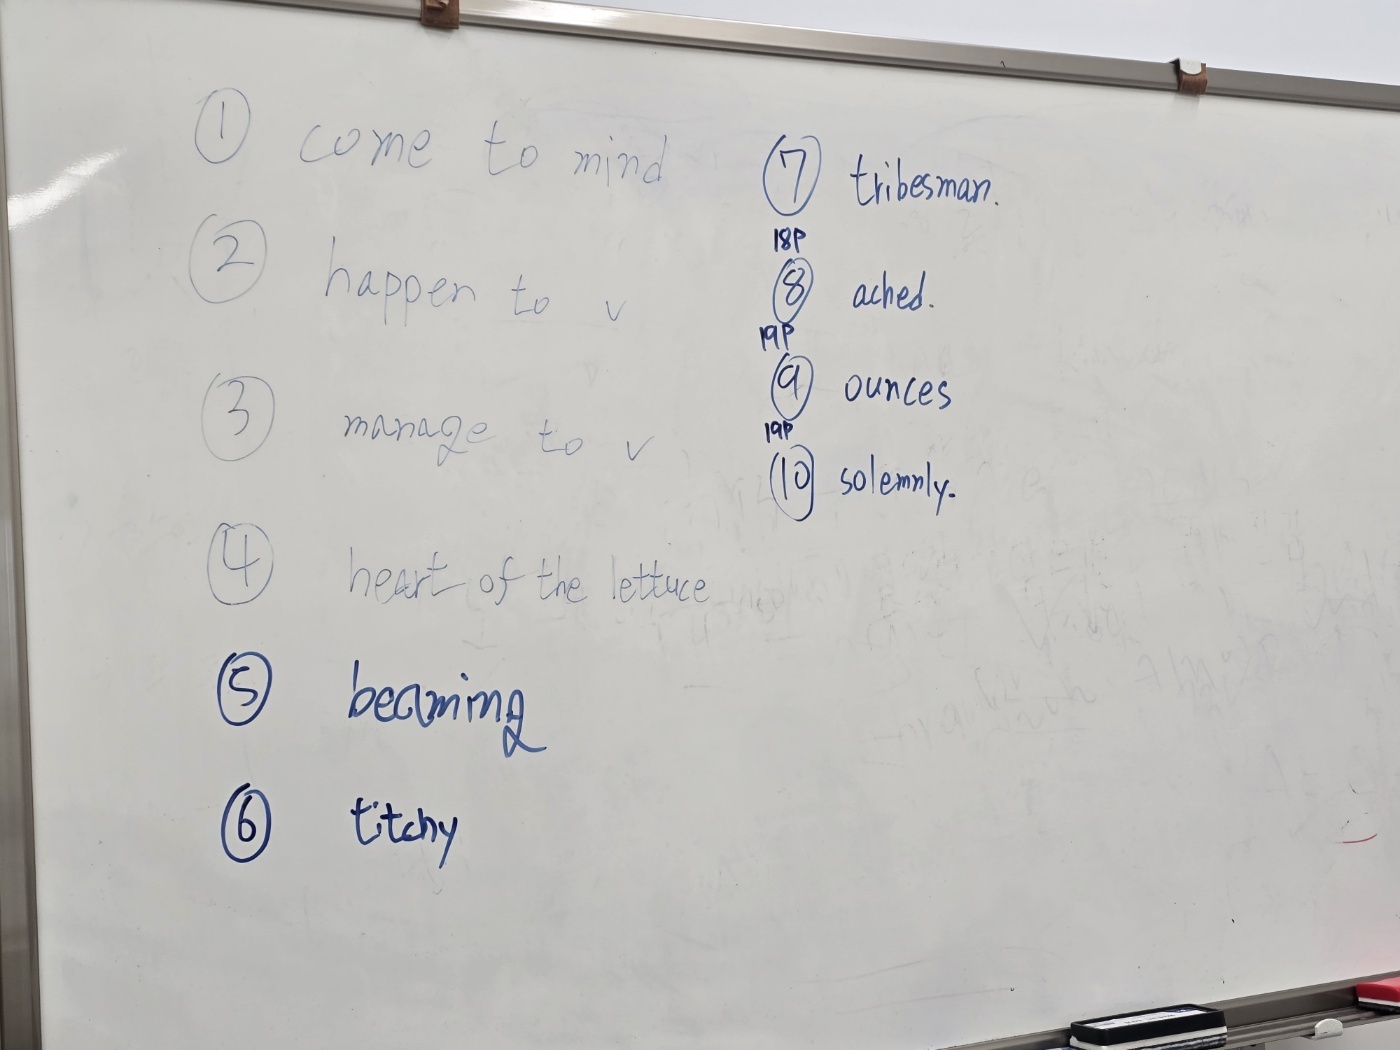 ① come to mind
② happen to v
③ manage to v
④ heart of the lettuce
⑤ beaming
⑥ titchy
⑦ tribesman.
18P
⑧ ached.
19P
⑨ ounces
19P
⑩ solemnly.